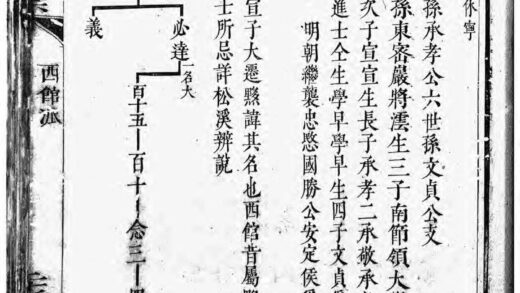 休寧
孫承孝公六世孫文貞公支
孫東密巖將澐生三子南節領大
次子宣宣生長子承孝二承敬承
進士仝生學早學早生四子文貞
明朝繼襲忠愍國勝公安定侯
宣子大遷縣諱其名也西館昔屬
士所忌詳松溪辨說
必達一名大
百十五 百十 念三
義
西館派